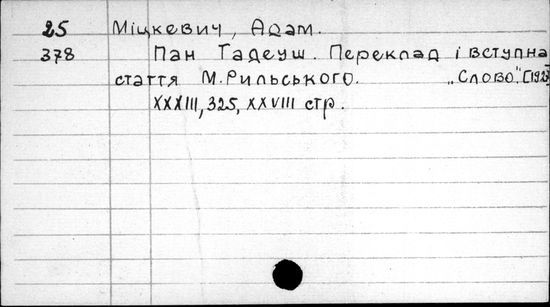 25 Міцкевич, Адам.
378 Пан Тадеуш. Переклад і вступна
стаття М. Рильського. „Слово". [1927]
XXXIII, 325, XXVIII стр.